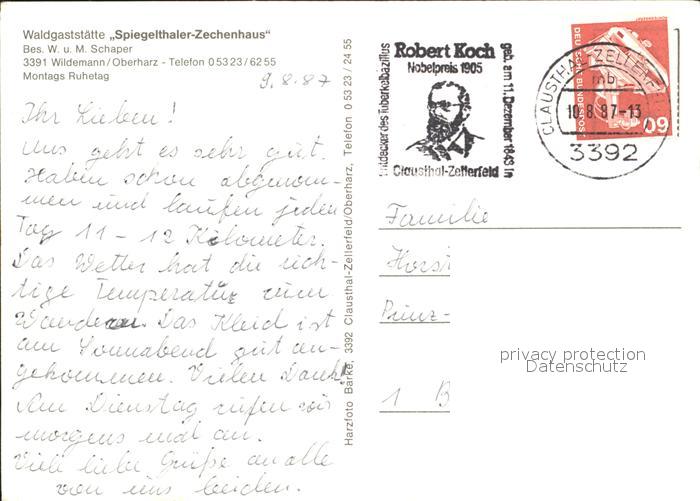 Waldgaststätte „Spiegelthaler-Zechenhaus“
Bes. W. u. M. Schaper
3391 Wildemann/Oberharz - Telefon 0 53 23 / 62 55
Montags Ruhetag
9.8.87
Ihr Lieben!
Uns geht es sehr gut.
Haben schon abgenom-
men und laufen jeden
Tag 11 - 12 Kilometer.
Das Wetter hat die rich-
tige Temperatur zum
Wandern. Das Kleid ist
am Sonnabend gut an-
gekommen. Vielen Dank!
Am Dienstag rufen wir
morgens mal an.
Viele liebe Grüße an alle
von uns beiden.
Harzfoto Barke, 3392 Clausthal-Zellerfeld/Oberharz, Telefon 0 53 23 / 24 55
Entdecker des Tuberkelbazillus
Robert Koch
Nobelpreis 1905
geb. am 11. Dezember 1843 in
Clausthal-Zellerfeld
DEUTSCHE BUNDESPOST
60
CLAUSTHAL-ZELLERFE
mb
10.8.87-13
3392
Familie
Horst
Prinz-
1 B
privacy protection
Datenschutz